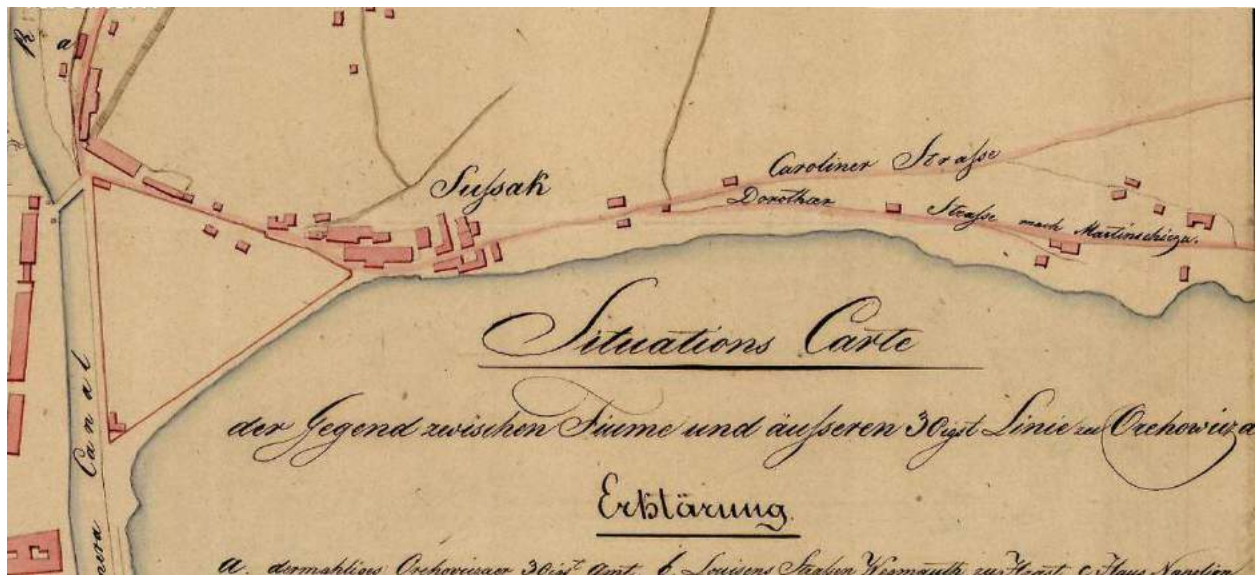 a
Sussak
Caroliner Strasse
Dorothær Strasse nach Martinschiza.
Canal
Situations Carte
der Gegend zwischen Fiume und äusseren 30igst Linie zu Orehowiza
Erklärung
a. dermahliges Orehovizaer 30igst Amt. b Louisens Strassen c Haus